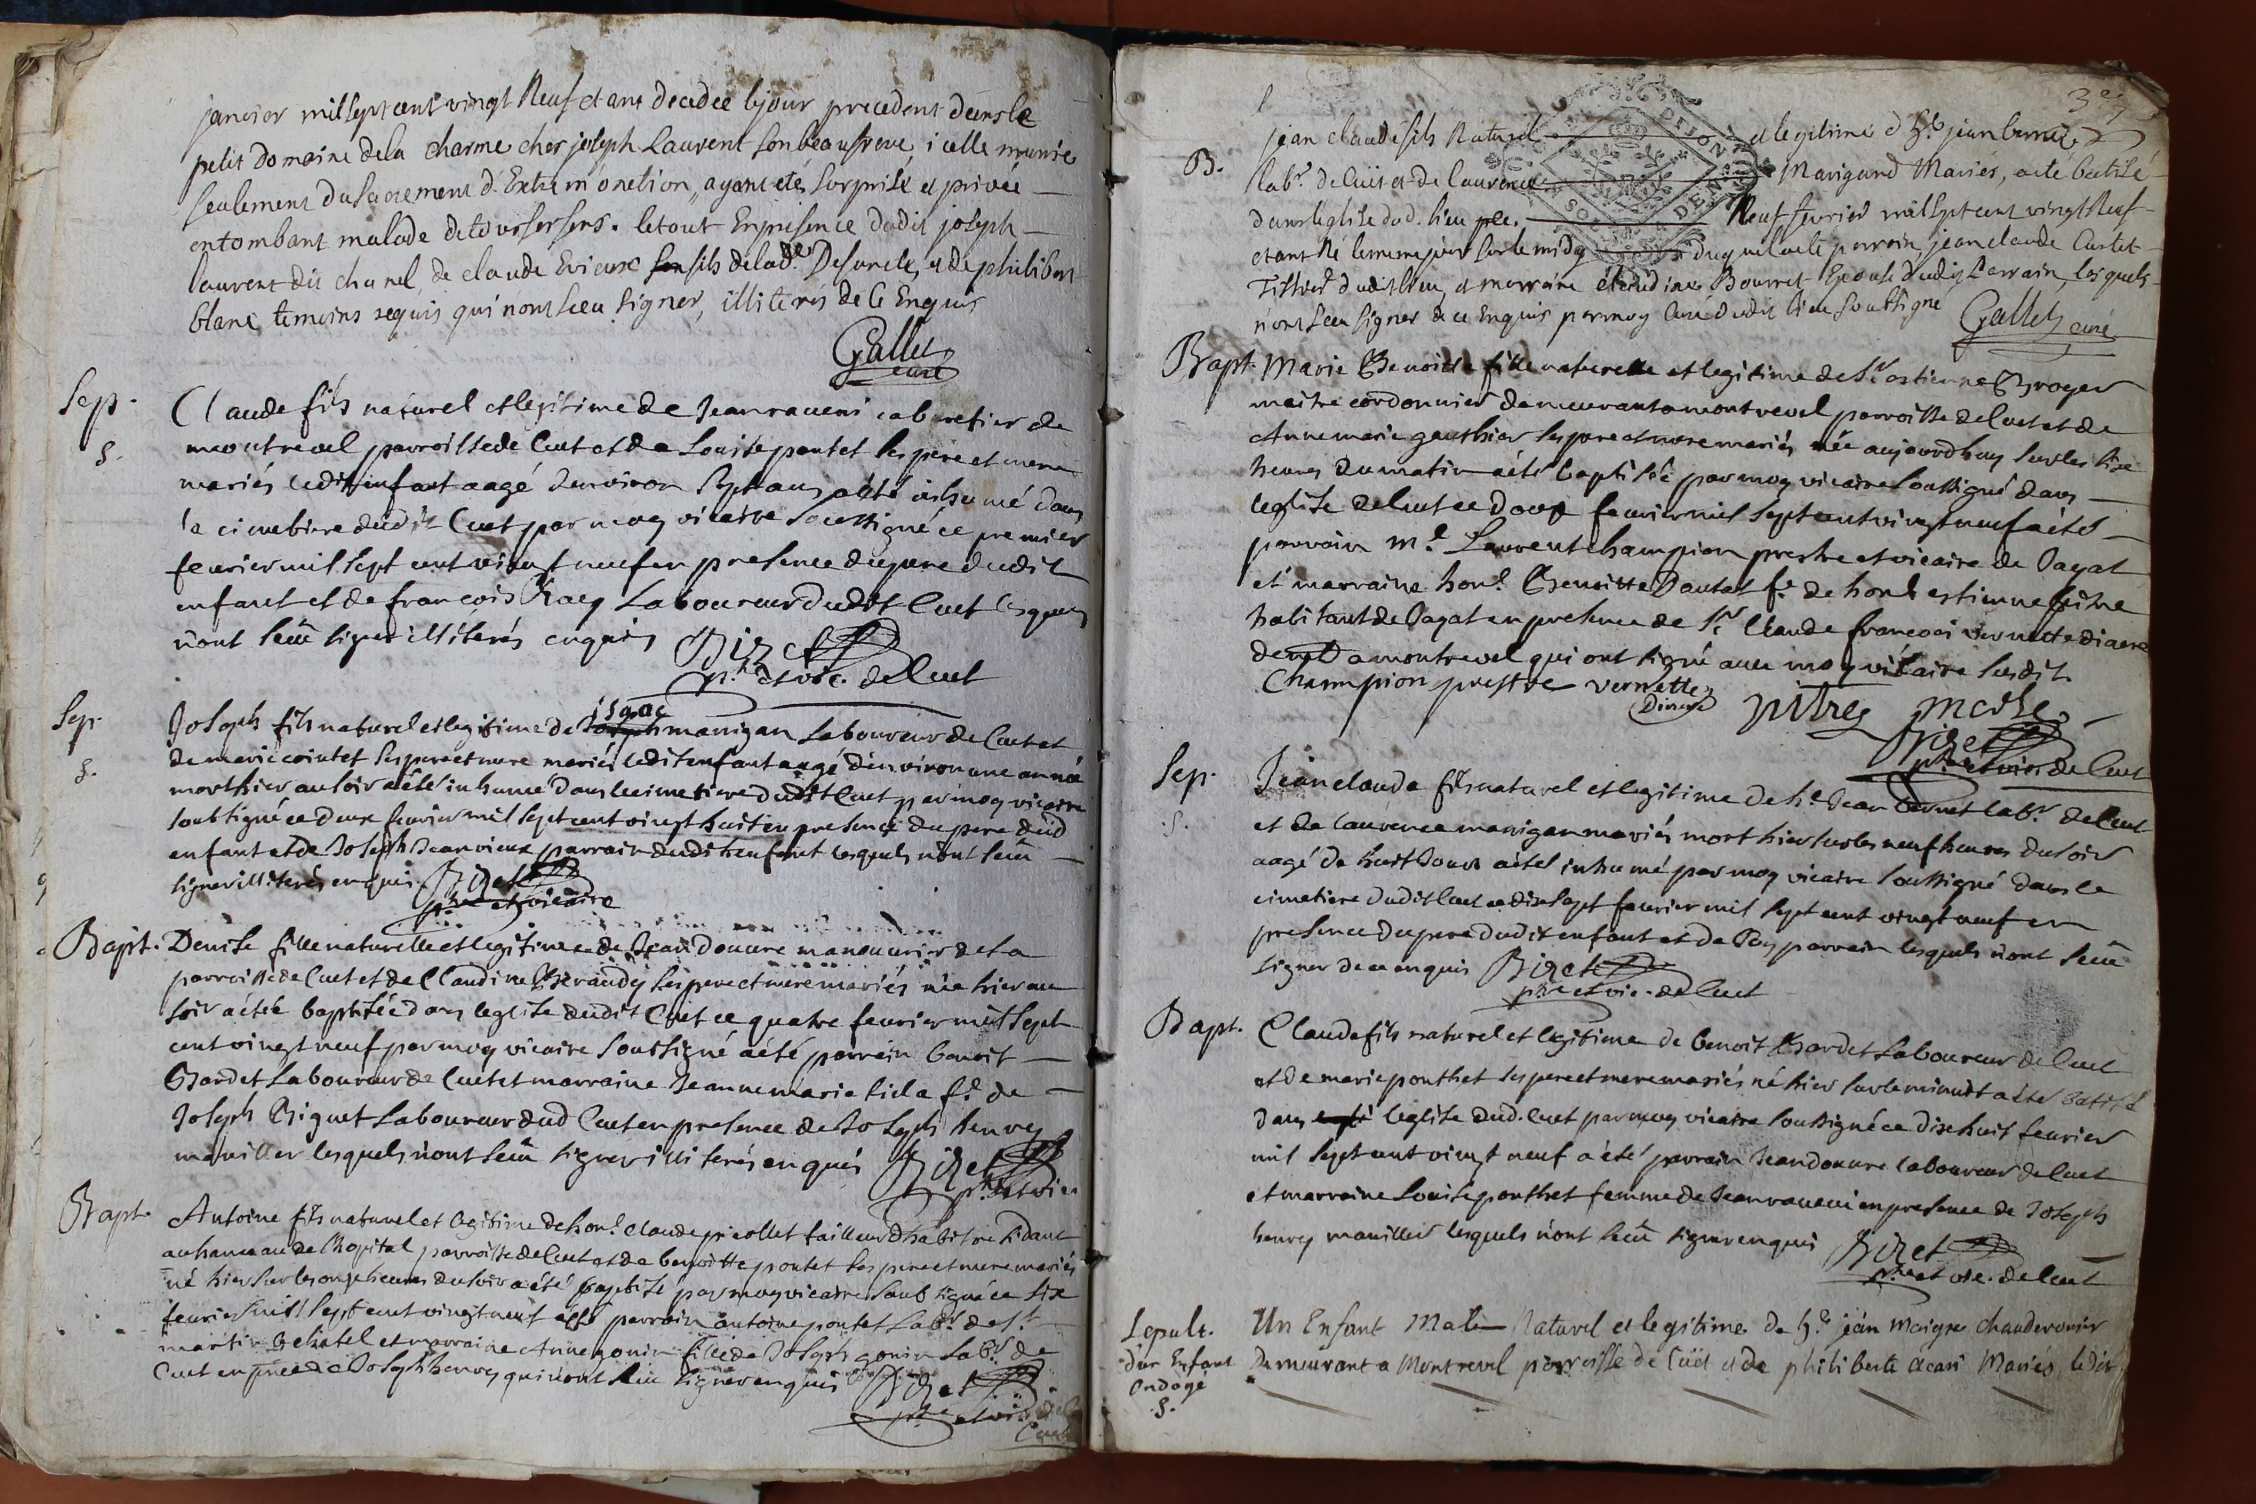 janvier mil sept cent vingt Neuf etant decedée le jour precedent dans le
petit domaine de la charme chez joseph Laurent son beaufrere, icelle munie
seulement du sacrement d'Extrem onction, ayant eté surprise et privée
en tombant malade de tous ses sens. le tout En presence dudit joseph
laurent dit charel, de claude Evieux fils de lad.e Defuncte, et de philibert
blanc temoins requis qui n'ont sceu signer, illiterés de ce Enquis
Gallet
curé
Sep.
Claude fils naturel et legitime de Jean raveni cabaretier de
montrevel parroisse de Cuet et de Louise pontet ses pere et mere
S.
mariés ledit enfant aagé denviron sept ans a été inhumé dans
la cimetiere dudit Cuet par moy vicaire soussigné ce premier
fevrier mil sept cent vingt neuf en presence du pere dudit
enfant et de francois Laboureur dudit Cuet lesquels
n'ont sceu signer illiterés enquis Bizet
p.tre et vic. de Cuet
Sep.
isaac
Joseph fils naturel et legitime de Joseph marigan Laboureur de Cuet et
de marie cointet ses pere et mere mariés ledit enfant aagé denviron une année
S.
mort hier au soir a été inhumé dans le cimetiere dudit Cuet par moy vicaire
soubsigné ce deux fevrier mil sept cent vingt huit en presence du pere dud
enfant et de Joseph Jeanvieux parrain dudit enfant lesquels n'ont sceu
signer illiterés enquis Bizet
p.tre et vicaire
Bapt. Denise fille naturelle et legitime de Jean Donure manouvrier de la
parroisse de Cuet et de Claudine Cherandy ses pere et mere mariés née hier au
soir a étée baptisée dans leglise dudit Cuet ce quatre fevrier mil sept
cent vingt neuf par moy vicaire soussigné a été parrein benoit
Bardet Laboureur de Cuet et marraine Jeanne marie fida f.e de
Joseph Biguet Laboureur dud Cuet en presence de Joseph henrey
maniller lesquels n'ont sceu signer illiterés enquis Bizet
p.tre et vic.
Bapt. Antoine fils naturel et legitime de hon.e claude picollet tailleur d'habit residant
au hameau de Lhopital parroisse de Cuet et de benoitte pontet ses pere et mere mariés
né hier sur les onze heures du soir a été baptisé par moy vicaire soub signé ce six
fevrier mil sept cent vingt neuf a été parrain antoine pontet Lab.r de S.t
martin le chatel et marraine Anne gonin fille de Joseph gonin Lab.r de
Cuet en pnce de Joseph henrey qui n'ont sceu signer enquis Bizet
p.tre et vic. de
Cuet
3e
jean claude fils Naturel et legitime d'h.e jean bernet
B.
lab.r de Cuet et de laurence Marigand Mariés, a eté batisé
dans leglise dud. lieu Neuf fevrier mil sept cent vingt Neuf
etant Né le meme jour sur le midy duquel a eté parrain jean claude Curtet
Tissier dudit lieu, et marraine claudine Bourret Epouse dudit parrain, lesquels
n'ont sceu signer de ce Enquis par moy Curé dudit lieu soussigné
Gallet curé
Bapt. Marie Benoitte fille naturelle et legitime de S.r estienne Broyer
maitre cordonnier demeurant a montrevel parroisse de Cuet et de
Anne marie gauthier ses pere et mere mariés née aujourdhuy sur les six
heures du matin a été baptisée par moy vicaire soussigné dans
leglise de Cuet ce douze fevrier mil sept cent vingt neuf a été
parrain m.e Laurent champion prestre et vicaire de Jayat
et marraine hon.e Benoitte Dautel f.e de hon.e estienne pitre
habitant de Jayat en presence de S.r Claude francois vernette diacre
dem.t a montrevel qui ont signé avec moy vicaire susdit
Champion prestre vernette
Diacre
pitre
Bizet
p.tre et vic. de Cuet
Sep.
Jean claude fils naturel et legitime de h.e Jean bernet lab.r de Cuet
S.
et de laurence marrigan mariés mort hier sur les neuf heures du soir
aagé de huit Jours a été inhumé par moy vicaire soussigné dans le
cimetiere dudit Cuet ce dix sept fevrier mil sept cent vingt neuf en
presence du pere dudit enfant et de parrein lesquels n'ont sceu
signer de ce enquis Bizet
p.tre et vic. de Cuet
Bapt. Claude fils naturel et legitime de benoit Bardet Laboureur de Cuet
et de marie ponthet ses pere et mere mariés né hier sur le minuit a été batisé
dans leglise dud. Cuet par moy vicaire soussigné ce dixhuit fevrier
mil sept cent vingt neuf a été parrain Jean donure laboureur de Cuet
et marraine Louise ponthet femme de Jean raveni en presence de Joseph
henrey maniller lesquels n'ont sceu signer enquis Bizet
p.tre et vic. de Cuet
Sepult.
d'un Enfant
Ondoyé
S.
Un Enfant Male Naturel et legitime de h.e jean Maigre chauderonier
Demeurant a Montrevel parroisse de Cuet et de philiberte Mariés, ledit